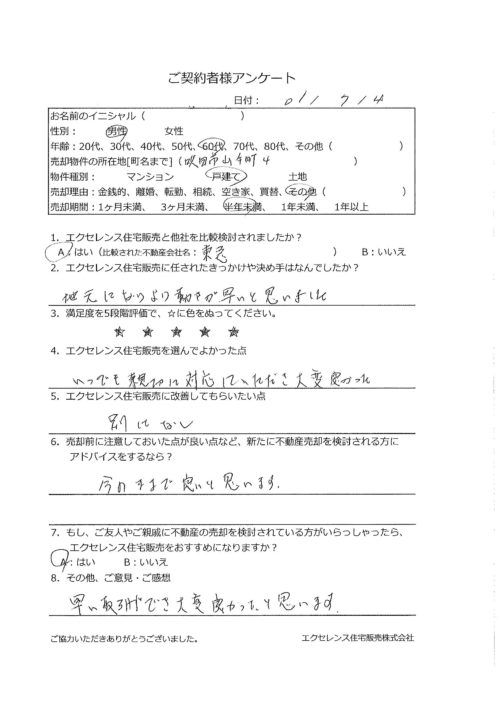 ご契約者様アンケート
日付： 01/ 7/4
お名前のイニシャル（ ）
性別： 男性 女性
年齢：20代、30代、40代、50代、60代、70代、80代、その他（ ）
売却物件の所在地[町名まで]（吹田市山手町4 ）
物件種別： マンション 戸建て 土地
売却理由：金銭的、離婚、転勤、相続、空き家、買替、その他（ ）
売却期間：1ヶ月未満、 3ヶ月未満、 半年未満、 1年未満、 1年以上
1．エクセレンス住宅販売と他社を比較検討されましたか？
A：はい（比較された不動産会社名：東急 ） B：いいえ
2．エクセレンス住宅販売に任されたきっかけや決め手はなんでしたか？
地元になり より動きが早いと思いました
3．満足度を5段階評価で、☆に色をぬってください。
★ ★ ★ ★ ★
4．エクセレンス住宅販売を選んでよかった点
いつでも親切に対応していただき大変良かった
5．エクセレンス住宅販売に改善してもらいたい点
別になし
6．売却前に注意しておいた点が良い点など、新たに不動産売却を検討される方に
アドバイスをするなら？
今のままで良いと思います.
7．もし、ご友人やご親戚に不動産の売却を検討されている方がいらっしゃったら、
エクセレンス住宅販売をおすすめになりますか？
A：はい B：いいえ
8．その他、ご意見・ご感想
早い取引ができ大変良かったと思います.
ご協力いただきありがとうございました。 エクセレンス住宅販売株式会社